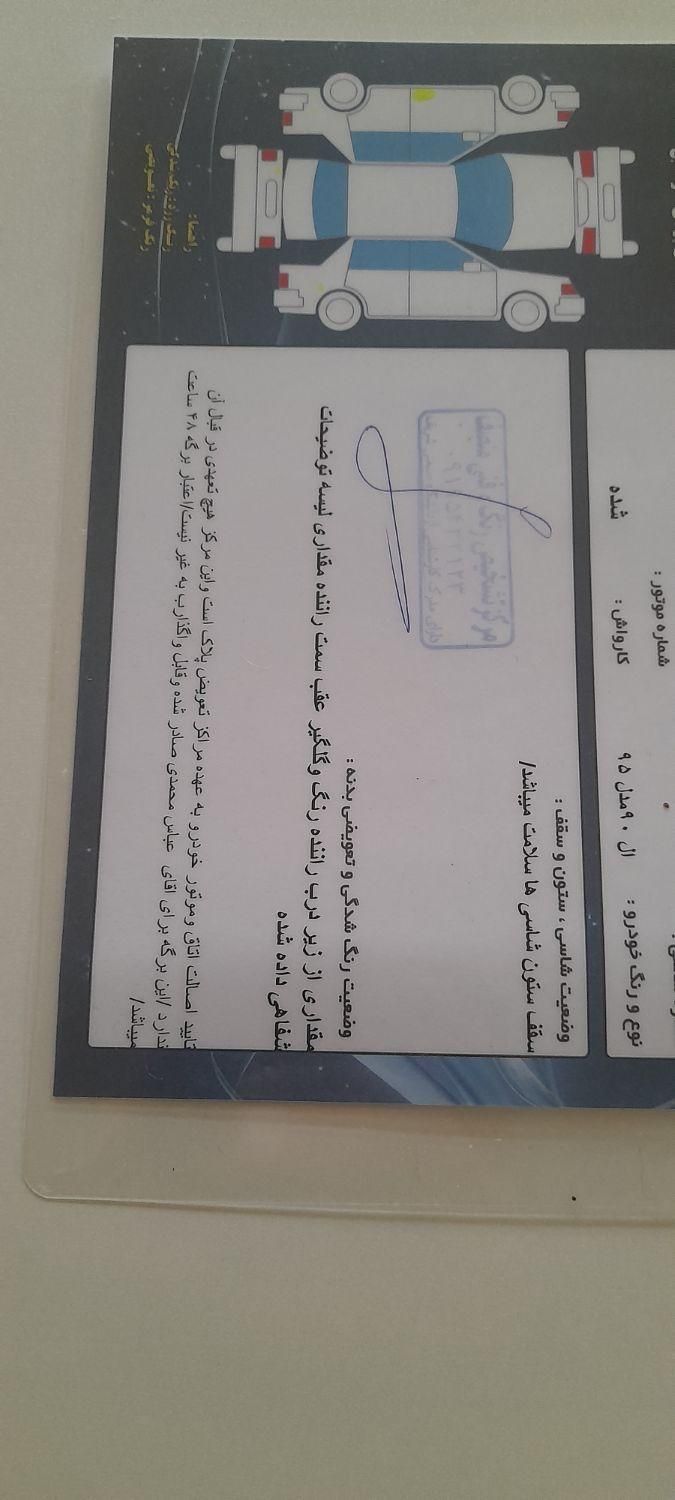 شماره موتور :
نوع و رنگ خودرو : ال ۹۰ مدل ۹۵ کارواش : شده
وضعیت شاسی ، ستون و سقف :
سقف ستون شاسی ها سلامت میباشد/
مرکز تشخیص رنگ فنی
وضعیت رنگ شدگی و تعویضی بدنه :
مقداری از زیر درب راننده رنگ وگلگیر عقب سمت راننده مقداری لیسه توضیحات
شفاهی داده شده
تایید اصالت اتاق وموتور خودرو به عهده مراکز تعویض پلاک است واین مرکز هیچ تعهدی در قبال آن
ندارد /این برگه برای اقای عباس محمدی صادر شده وقابل واگذارب به غیر نیست/اعتبار برگه ۴۸ ساعت
میباشد/
راهنما :
رنگ زرد : رنگ شدگی
رنگ قرمز : تعویضی